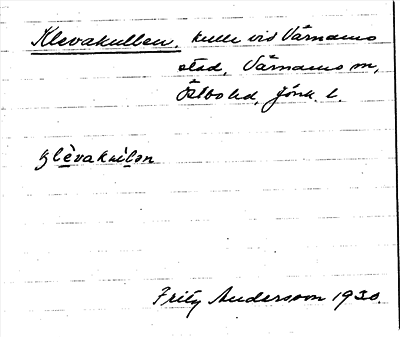 Klevakullen, kulle vid Värnamo
stad, Värnamo m,
Östbo hd, Jönk. l.
klèvakulən
Fritz Andersson 1930.